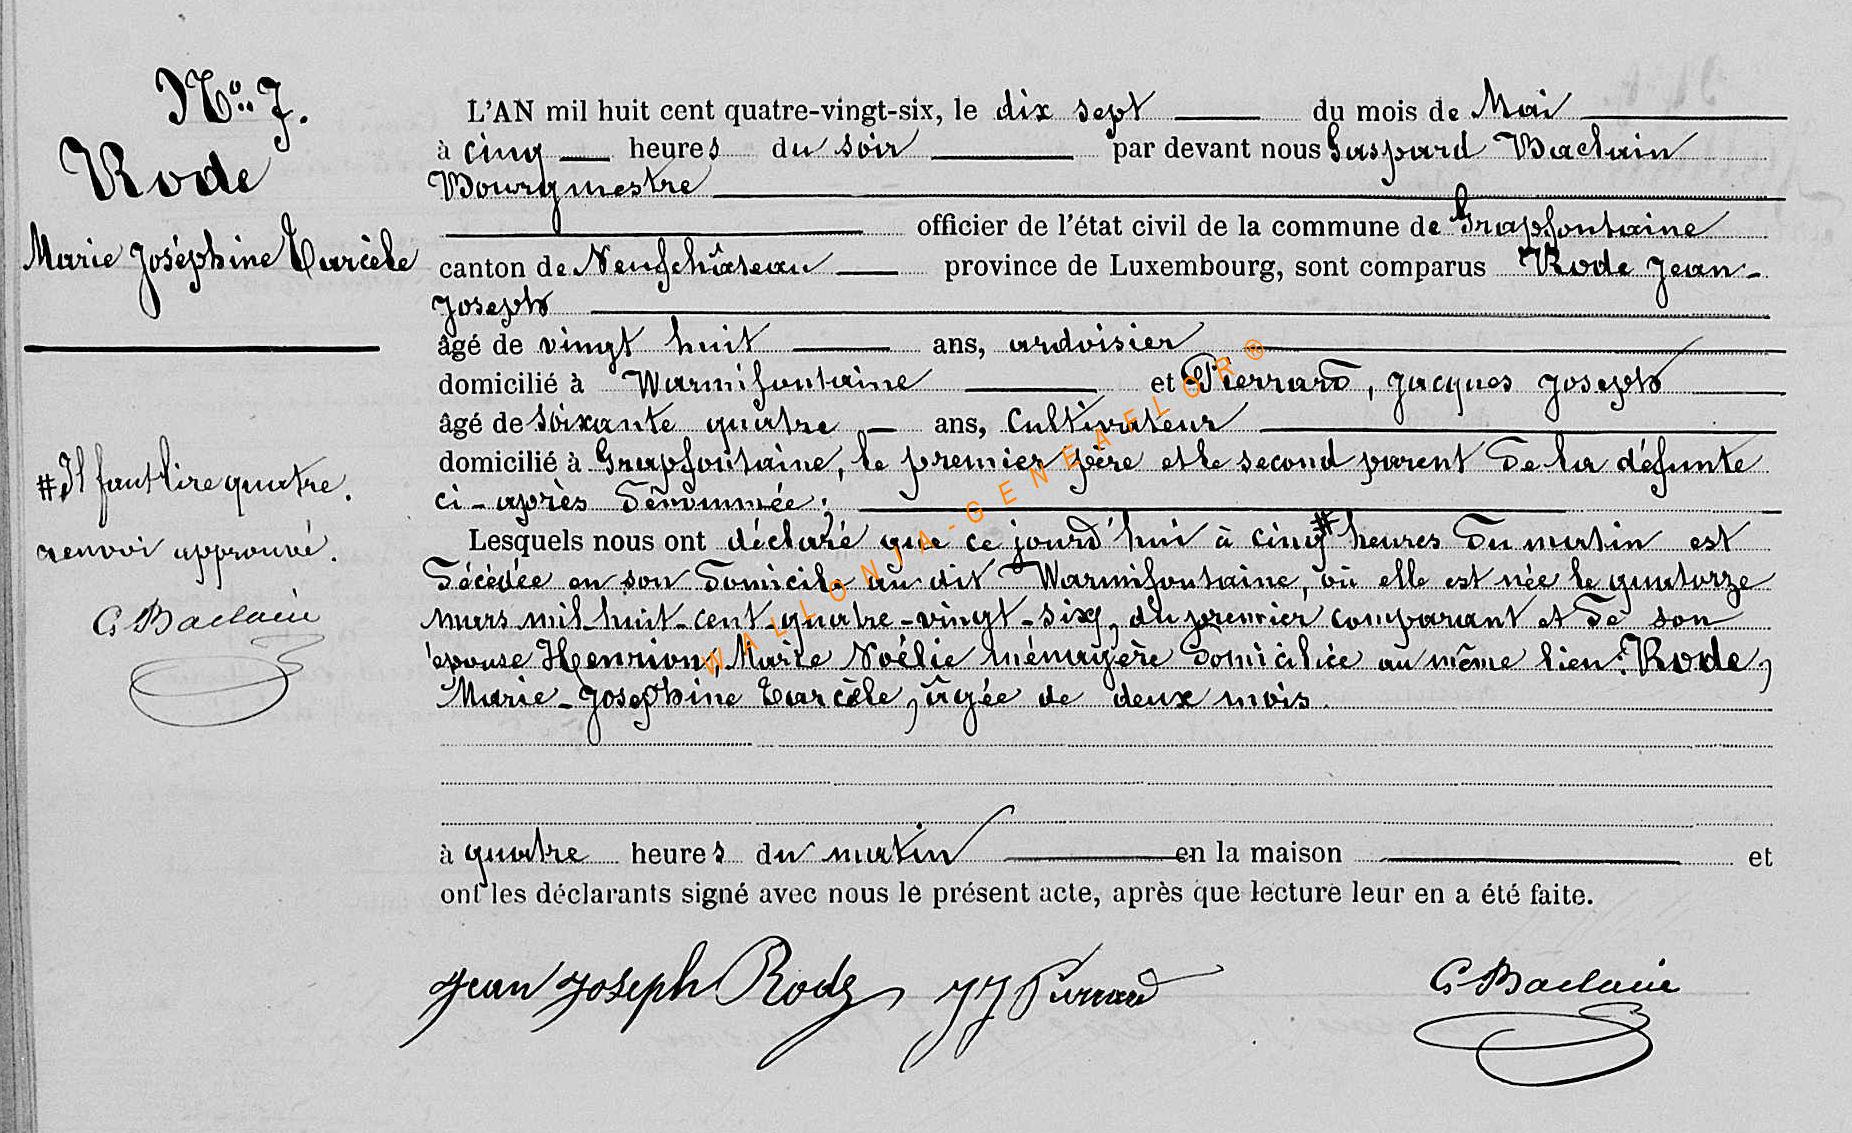 No.. 7.
Rode
Marie Joséphine Earcèle
#Il faut lire quatre.
renvoi approuvé.
G Baclain
L'AN mil huit cent quatre-vingt-six, le dix sept du mois de Mai
à cinq heures du soir par devant nous Gaspard Baclain
Bourgmestre
officier de l'état civil de la commune de Grapfontaine
canton de Neufchâteau province de Luxembourg, sont comparus Rode Jean-
Joseph
âgé de vingt huit ans, ardoisier
domicilié à Warmifontaine et Pierrard, Jacques Joseph
âgé de soixante quatre ans, cultivateur
domicilié à Grapfontaine, le premier père et le second parent de la défunte
ci-après dénommée;
Lesquels nous ont déclaré que ce jourd'hui à cinq# heures du matin est
décédée en son domicile au dit Warmifontaine, où elle est née le quatorze
mars mil-huit-cent-quatre-vingt-six, du premier comparant et de son
épouse Henrion, Marie Noélie ménagère domiciliée au même lieu: Rode,
Marie-Josephine Earcèle, âgée de deux mois.
à quatre heures du matin en la maison et
ont les déclarants signé avec nous le présent acte, après que lecture leur en a été faite.
Jean Joseph Rode JJ Pierrard G Baclain
WALLONIA-GENEAFLOR®